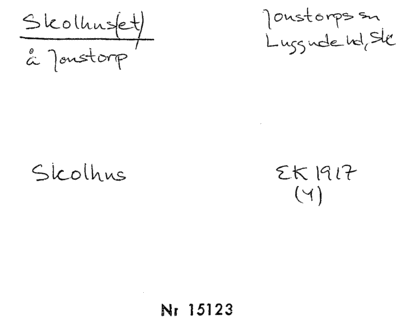 Skolhus(et)
å Jonstorp
Jonstorps sn
Luggude hd, Sk
Skolhus
EK 1917
(4)
Nr 15123